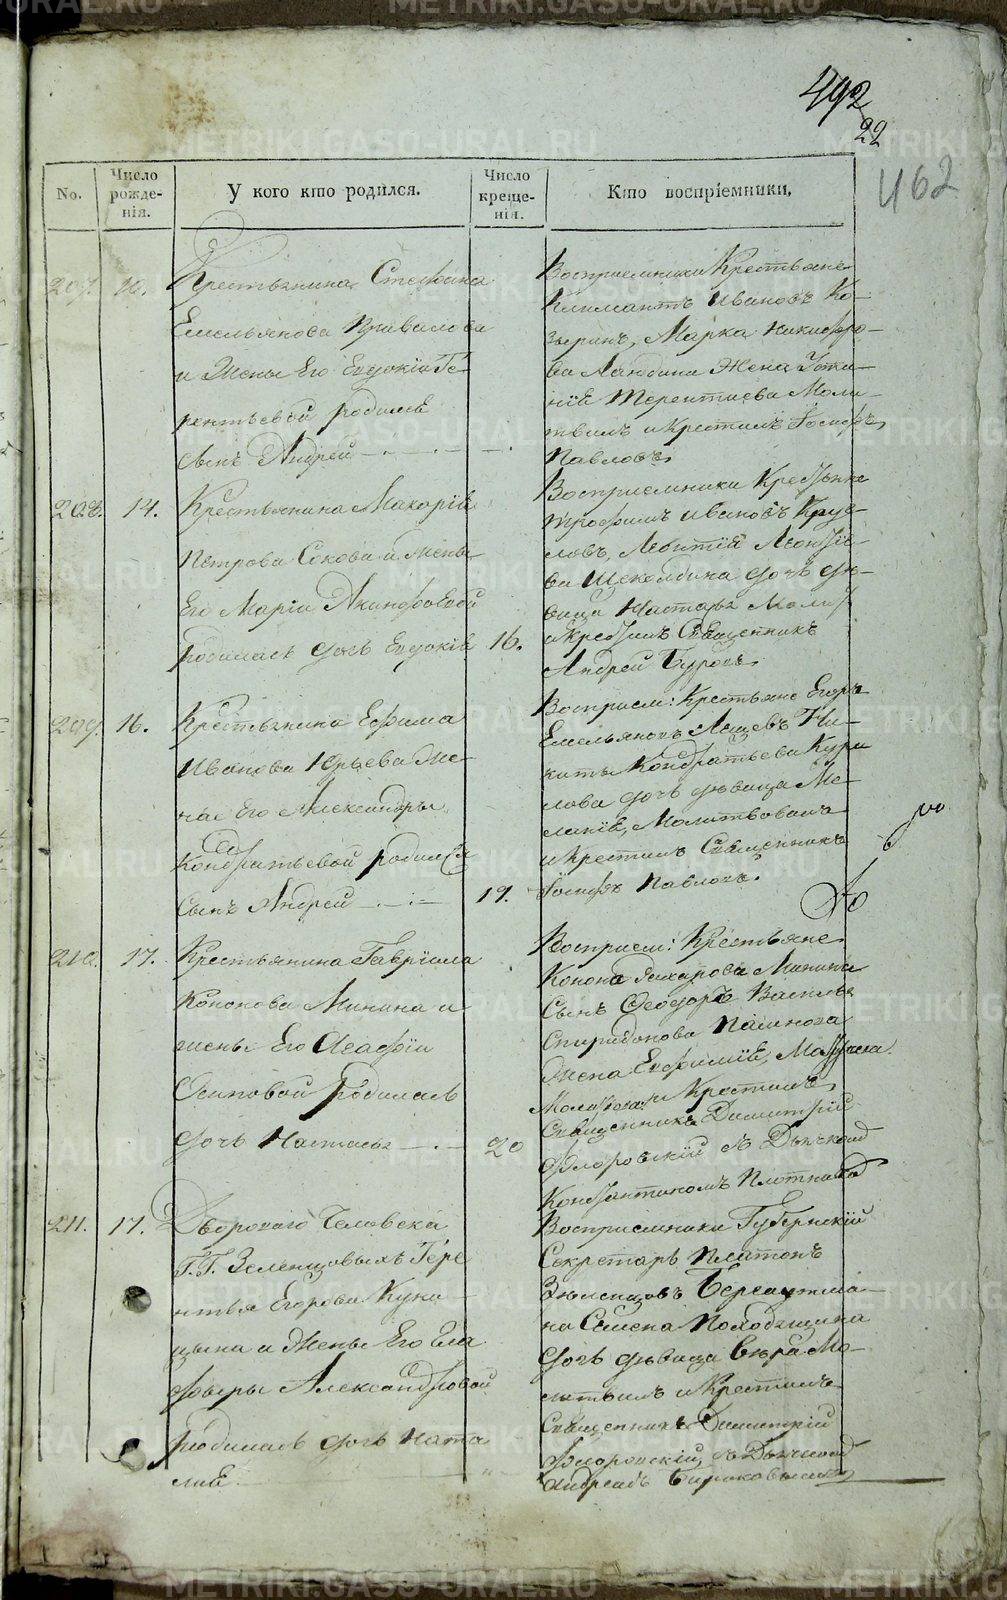 492
22
462
No.
Число рожде-
нія.
У кого кто родился.
Число креще-
нія.
Кто воспріемники.
207. 10.
Крестьянина Стефана
Емельянова Привалова
и Жены Его Евдокіи Те-
рентьевой родился
Сынъ Андрей
Восприемники Крестьяне
Климантъ Ивановъ Ко-
зыринъ, Марка Никифоро-
ва Жена
Терентиева Моли-
твилъ и Крестилъ Іосифъ
Павловъ.
208. 14.
Крестьянина Макорія
Петрова Сокова и жены
Его Маріи Акинфоевой
родилась дочь Евдокія 16.
Восприемники Крестьяне
Трофимъ Ивановъ Круг-
ловъ, Леонтія Леонтіе-
ва дочь дѣ-
вица Настасья Молит
и крестилъ Священникъ
Андрей Буровъ.
209. 16.
Крестьянина Ефима
Иванова Юрьева Же-
на Его Александры
Кондратьевой родился
Сынъ Андрей 19.
Восприем: Крестьяне Егоръ
Емельяновъ Ни-
киты Кондратьева Кури
лова дочь дѣвица Ме-
ланія, Молитвовалъ
и Крестилъ Священникъ
Іосифъ Павловъ.
210. 17.
Крестьянина Гавріила
Кононова Минина и
жены Его Агафіи
Осиповой родилась
дочь Настасья 20
Восприем: Крестьяне
Конона Захарова Минина
Сынъ Феодоръ Василья
Спиридонова
Жена Евфимія,
Молитвовалъ и Крестилъ
Священникъ Димитрій
Флоровскій съ Дьячкомъ
Константиномъ Плотниковъ
211. 17.
Двороваго Человека
Г.Г. Зеленцовыхъ Тере
нтья Егорова Куни
цына и Жены Его Гла
фиры Александровой
родилась дочь Ната
лия
Восприемники Губернскій
Секретарь Платонъ
Зеленцовъ
на Семена
дочь дѣвица Вѣра Мо-
литвилъ и Крестилъ
Священникъ Димитрій
Флоровскій, съ Дьячкомъ
Андреемъ